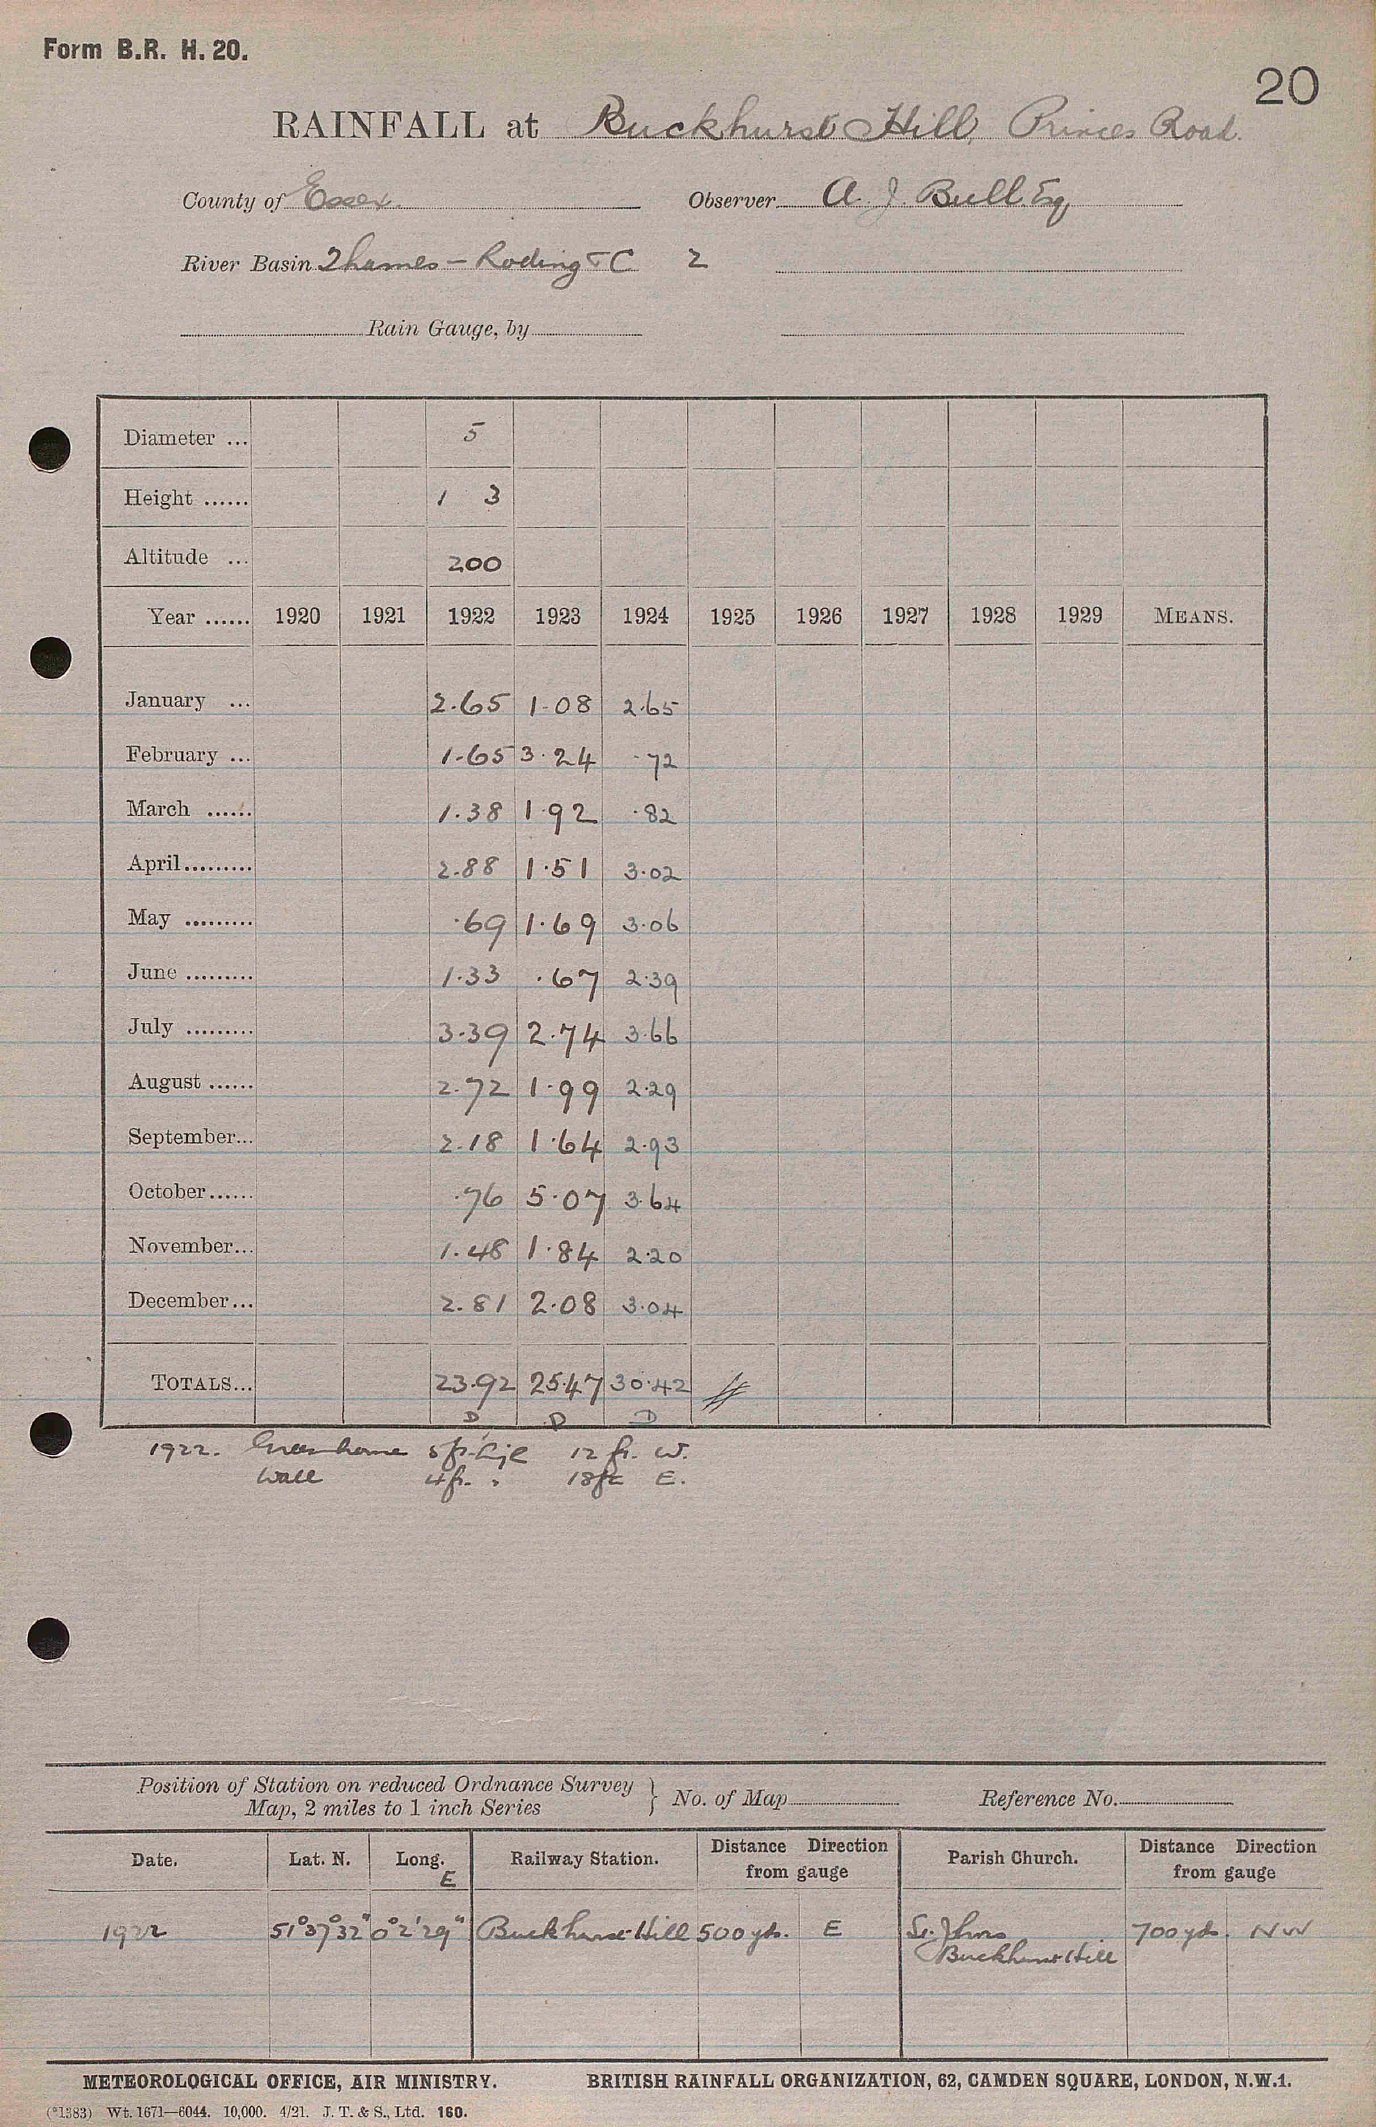 Form B.R. H. 20.
20
RAINFALL at Buckhurst Hill, Princes Road.
County of Essex. Observer A. J. Bull Esq,
River Basin Thames – Roding & C 2
Rain Gauge, by
Diameter ... 5
Height ...... 1 3
Altitude ... 200
Year ...... 1920 1921 1922 1923 1924 1925 1926 1927 1928 1929 MEANS.
January ... 2.65 1.08 2.65
February ... 1.65 3.24 .72
March ...... 1.38 1.92 .82
April......... 2.88 1.51 3.02
May ......... .69 1.69 3.06
June ......... 1.33 .67 2.39
July ......... 3.39 2.74 3.66
August ...... 2.72 1.99 2.29
September... 2.18 1.64 2.93
October...... .76 5.07 3.64
November... 1.48 1.84 2.20
December... 2.81 2.08 3.04
TOTALS... 23.92 25.47 30.42
D D D
1922. Greenhouse 5ft. high 12 ft. W.
Wall 4ft. " 18ft E.
Position of Station on reduced Ordnance Survey
Map, 2 miles to 1 inch Series } No. of Map Reference No.
Date. Lat. N. Long. E Railway Station. Distance Direction from gauge Parish Church. Distance Direction from gauge
1922 51°37°32" 0°2'29" Buckhurst Hill 500 yds. E St. Johns 700 yds. NW
Buckhurst Hill
METEOROLOGICAL OFFICE, AIR MINISTRY. BRITISH RAINFALL ORGANIZATION, 62, CAMDEN SQUARE, LONDON, N.W.1.
(*1383) Wt. 1671—6044. 10,000. 4/21. J. T. & S., Ltd. 160.